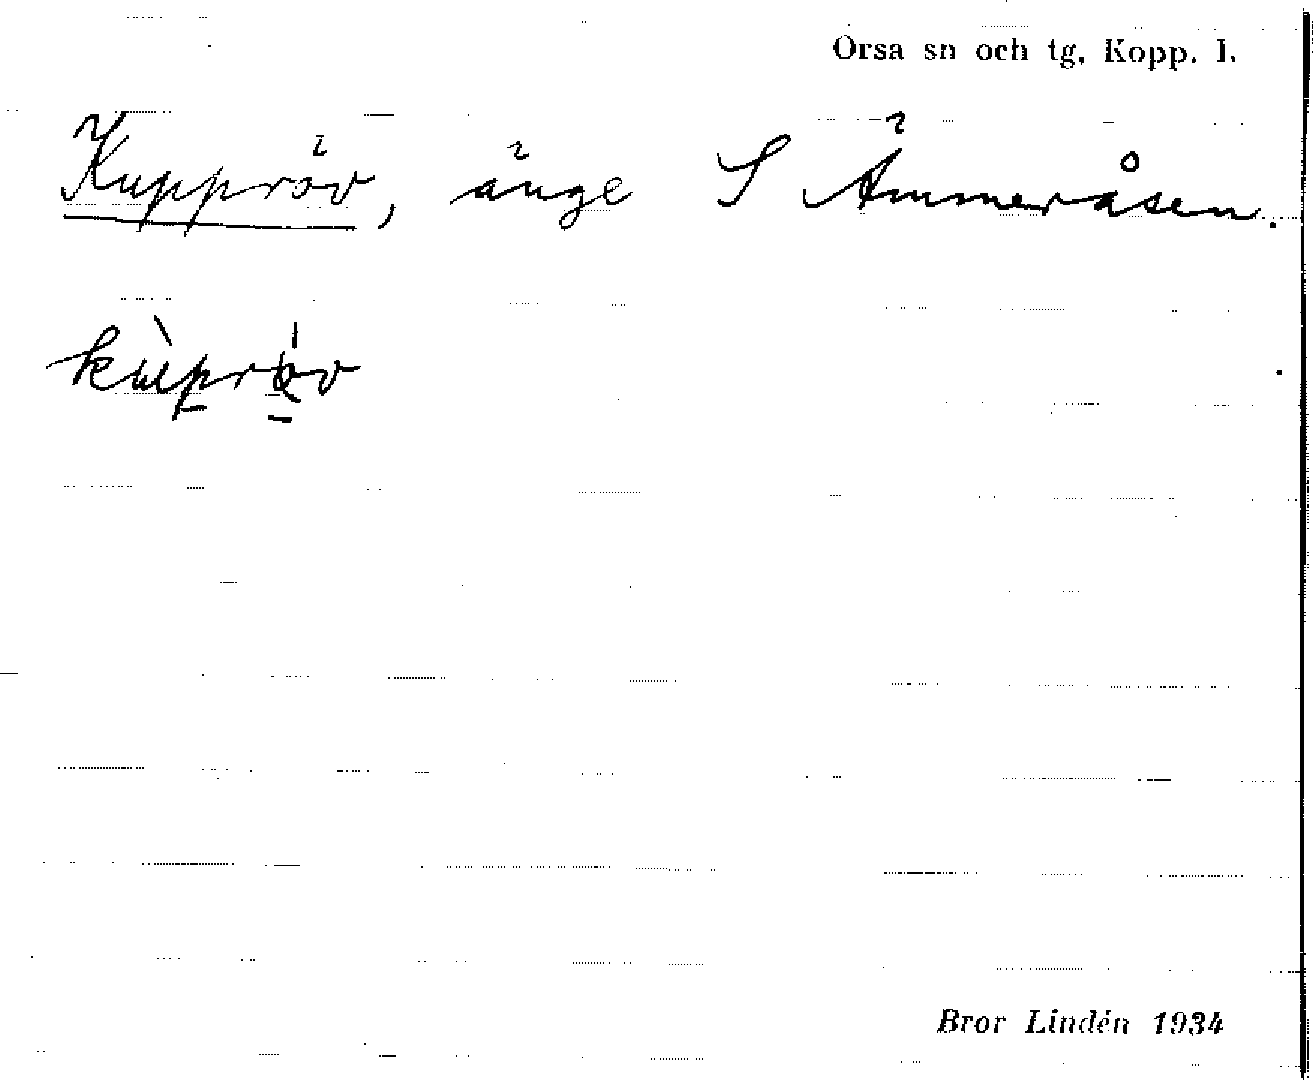 Orsa sn och tg, Kopp. l.
Kuppröv, änge S Ämmeråsen.
kùpröv
Bror Lindén 1934